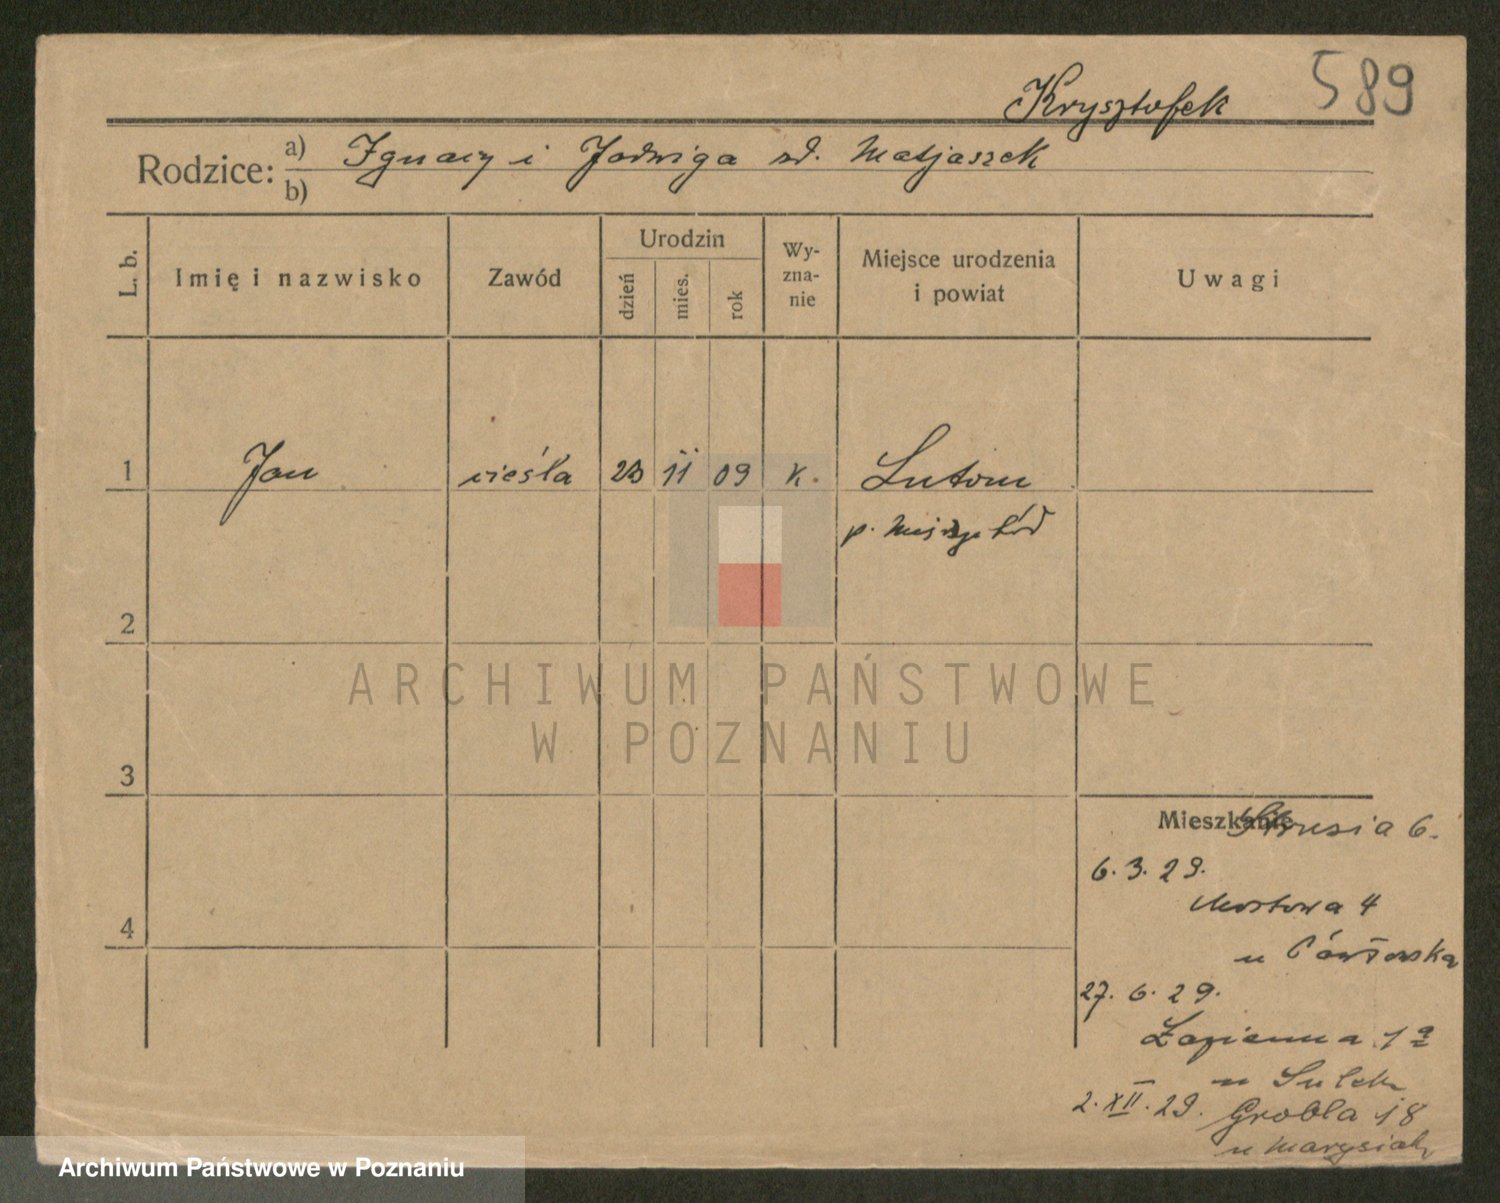 589
Krysztofek
Rodzice: a) Ignacy i Jadwiga zd. Matjaszek
b)
L. b.
Imię i nazwisko
Zawód
Urodzin
dzień
mies.
rok
Wy-
zna-
nie
Miejsce urodzenia
i powiat
Uwagi
1 Jan cieśla 23 11 09 k. Lutom
p. Międzychód
2
ARCHIWUM PAŃSTWOWE
W POZNANIU
3
Mieszkanie Strusia 6.
6.3.29.
Mostowa 4
4
u
27.6.29.
Łazienna 1a
u
2.XII.29. Grobla 18
u Marysiak
Archiwum Państwowe w Poznaniu